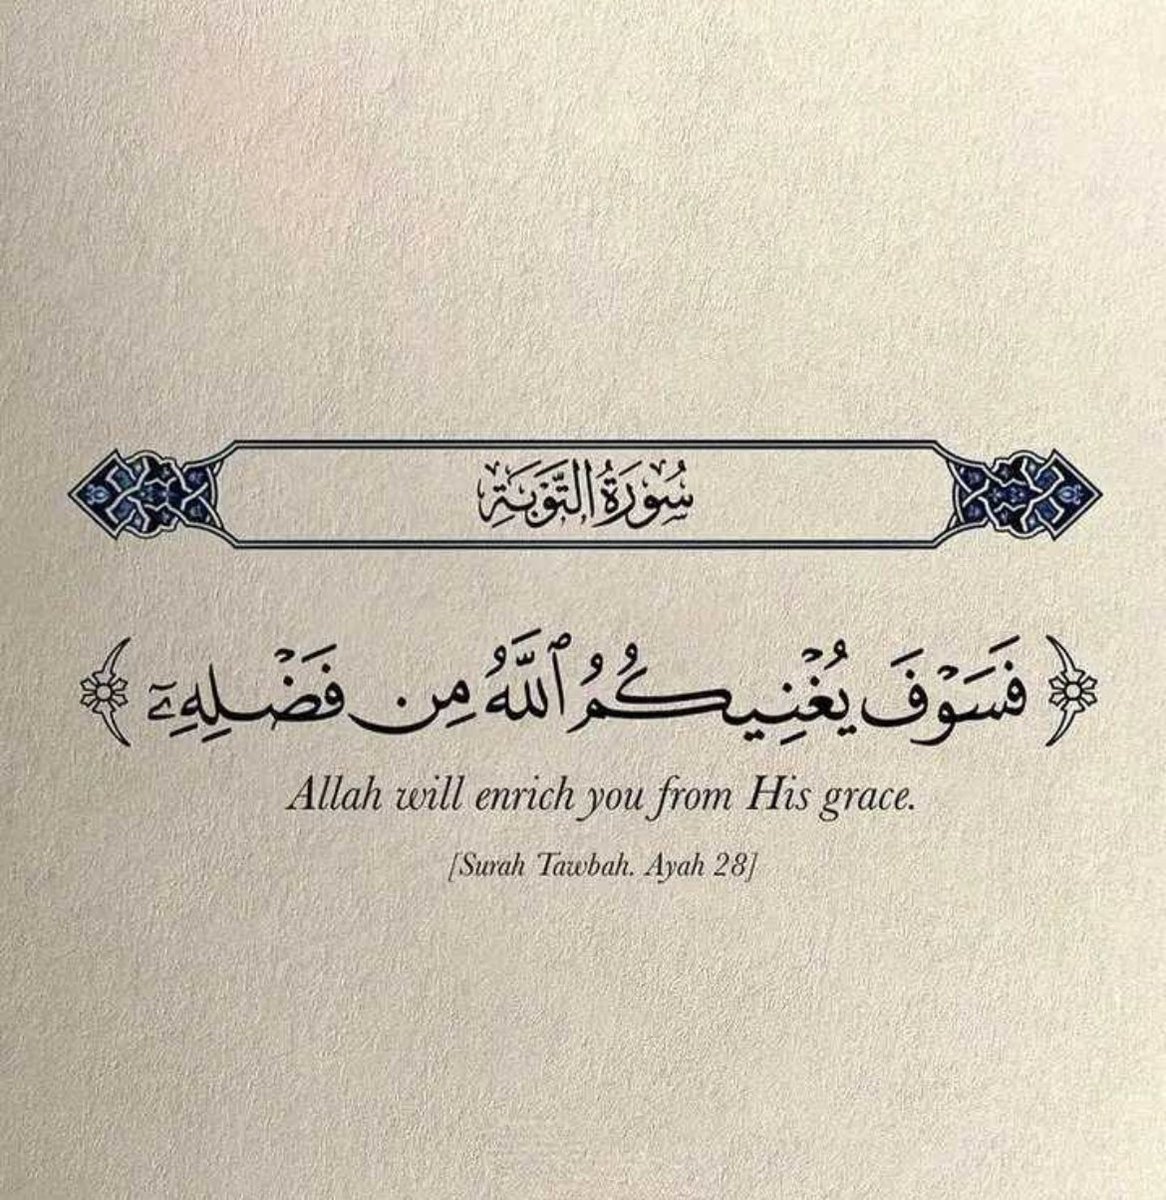 سُورَةُ التَّوْبَةِ
﴿فَسَوْفَ يُغْنِيكُمُ ٱللَّهُ مِن فَضْلِهِۦٓ﴾
Allah will enrich you from His grace.
[Surah Tawbah. Ayah 28]